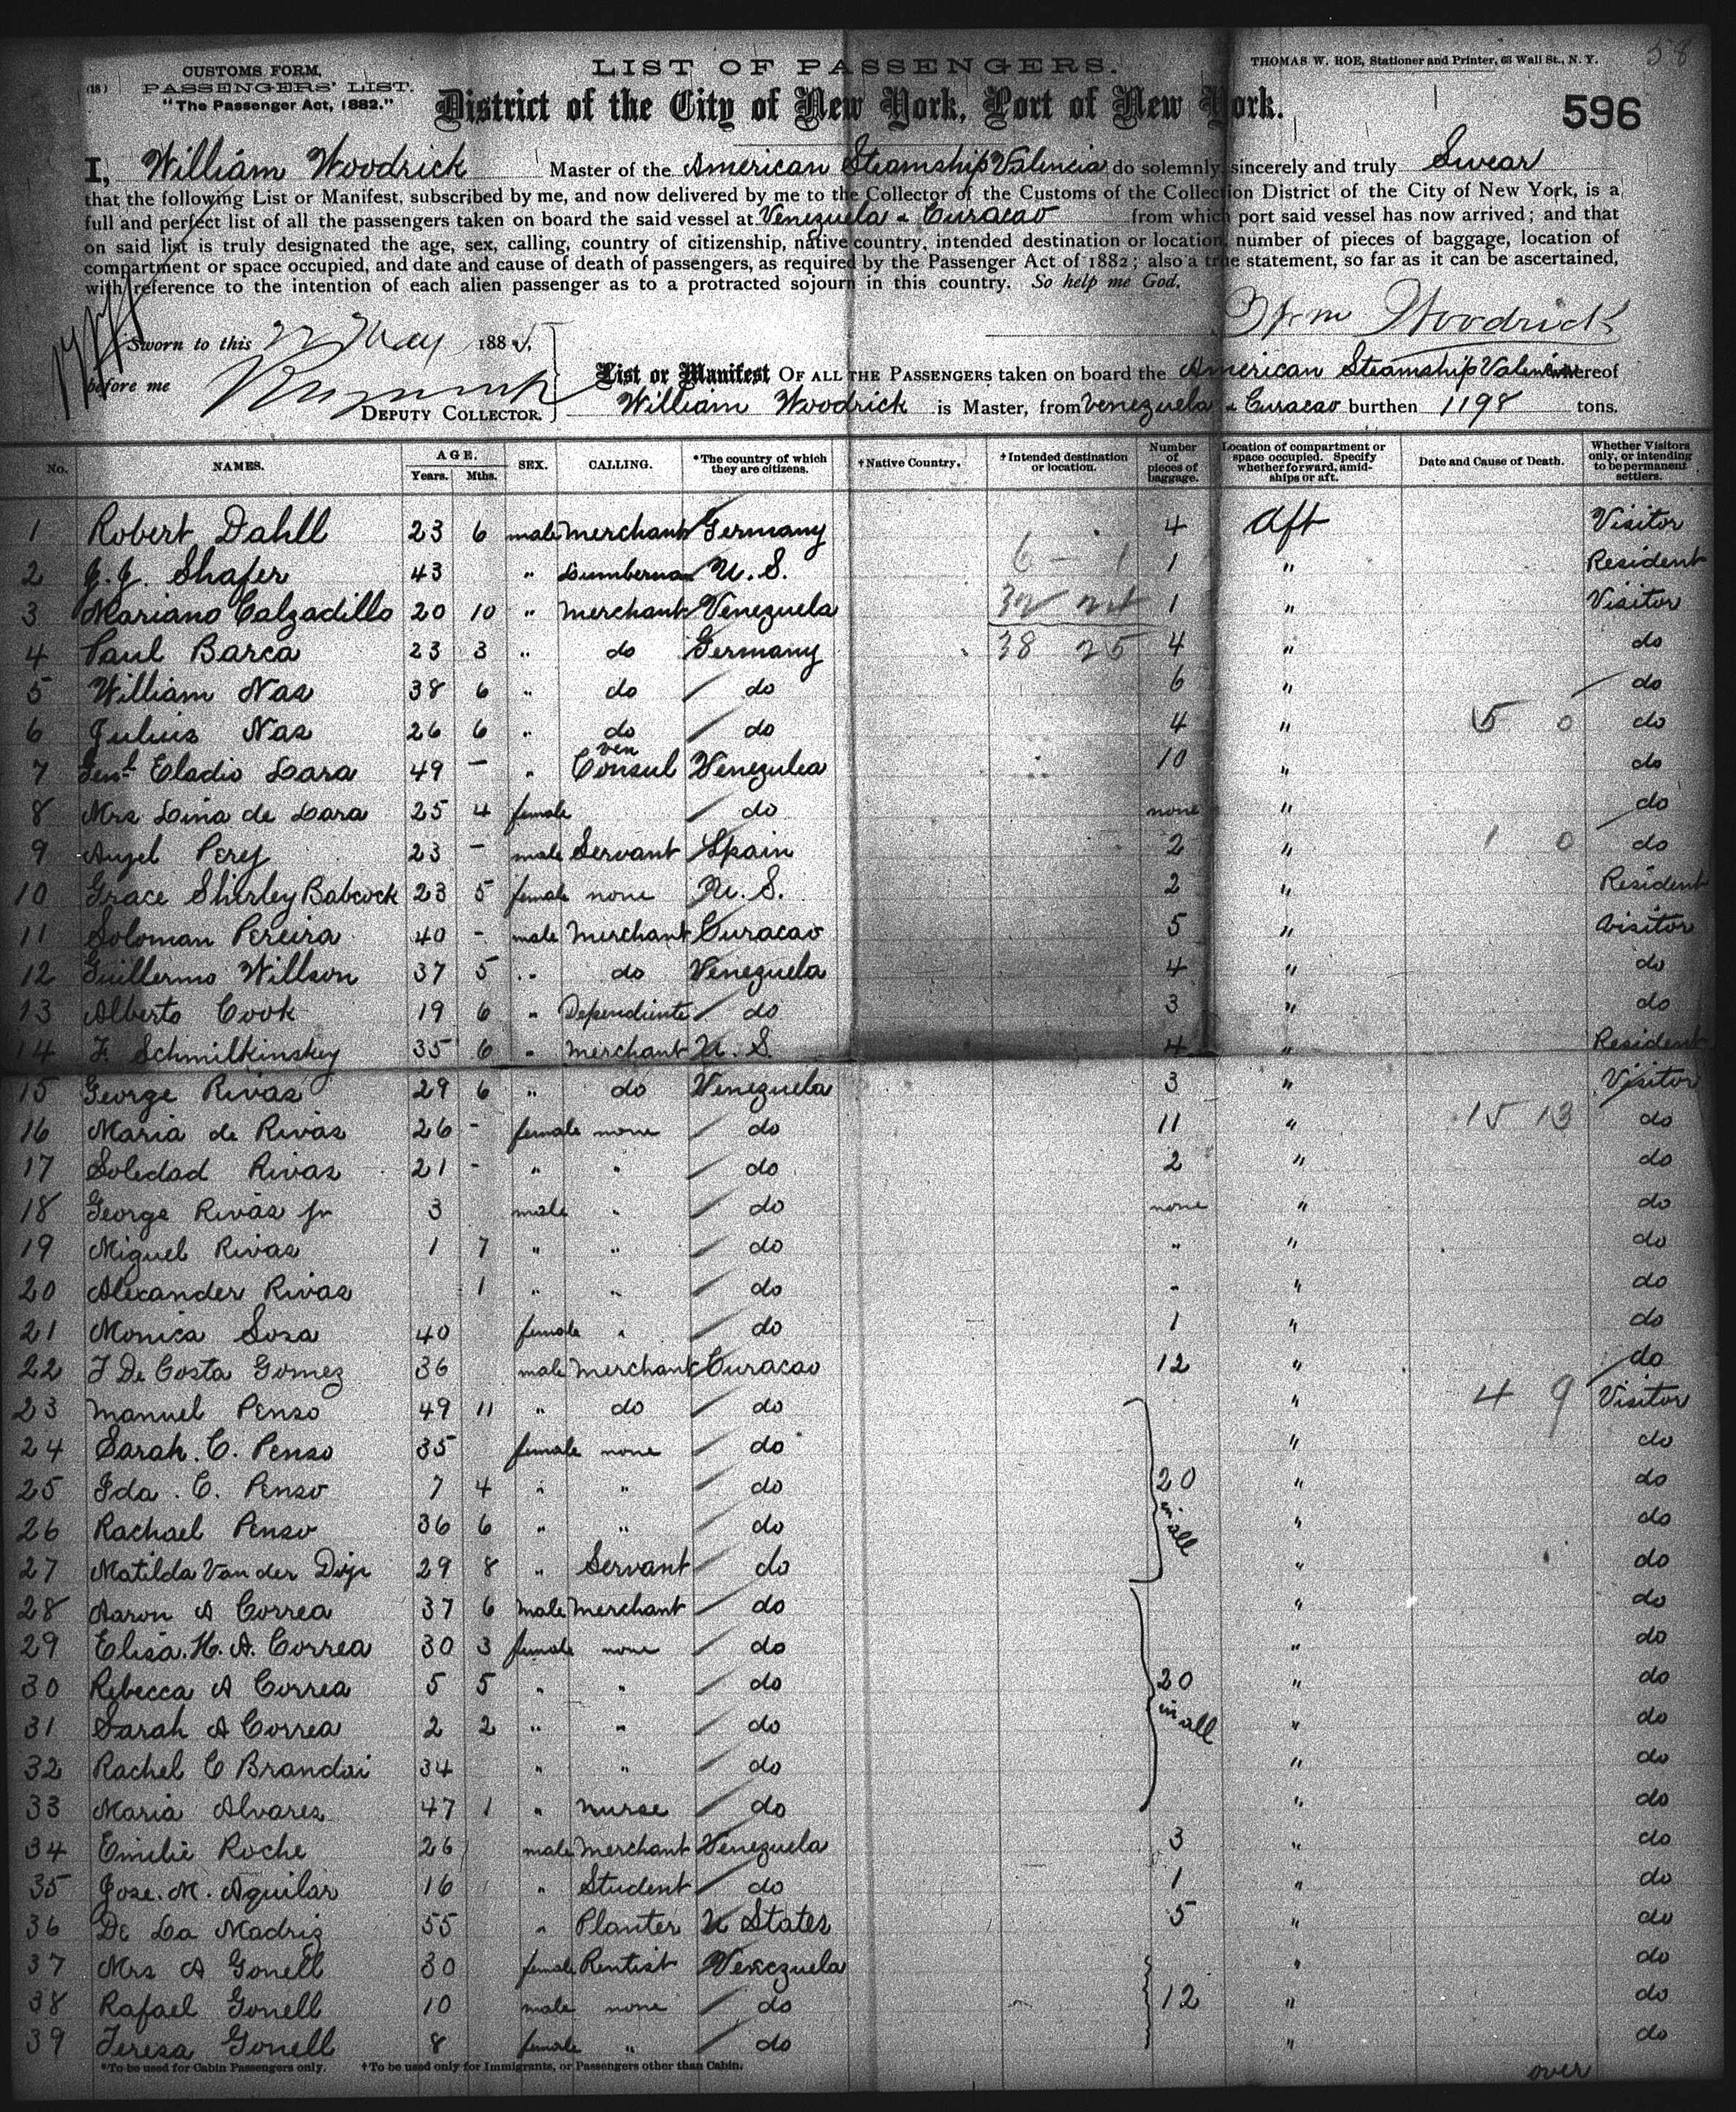 58
CUSTOMS FORM,
LIST OF PASSENGERS.
THOMAS W. ROE, Stationer and Printer, 63 Wall St., N. Y.
(18) PASSENGERS' LIST.
"The Passenger Act, 1882."
District of the City of New York, Port of New York.
596
I, William Woodrick Master of the American Steamship Valencia do solemnly, sincerely and truly Swear
that the following List or Manifest, subscribed by me, and now delivered by me to the Collector of the Customs of the Collection District of the City of New York, is a
full and perfect list of all the passengers taken on board the said vessel at Venezuela & Curacao from which port said vessel has now arrived; and that
on said list is truly designated the age, sex, calling, country of citizenship, native country, intended destination or location, number of pieces of baggage, location of
compartment or space occupied, and date and cause of death of passengers, as required by the Passenger Act of 1882; also a true statement, so far as it can be ascertained,
with reference to the intention of each alien passenger as to a protracted sojourn in this country. So help me God.
Wm Woodrick
Sworn to this 22 May 1885,
before me
DEPUTY COLLECTOR.
List or Manifest OF ALL THE PASSENGERS taken on board the American Steamship Valencia whereof
William Woodrick is Master, from Venezuela & Curacao burthen 1198 tons.
No. NAMES. AGE. Years. Mths. SEX. CALLING. *The country of which they are citizens. †Native Country. †Intended destination or location. Number of pieces of baggage. Location of compartment or space occupied. Specify whether forward, amidships or aft. Date and Cause of Death. Whether Visitors only, or intending to be permanent settlers.
1 Robert Dahll 23 6 male Merchant Germany 4 Aft Visitor
2 J. J. Shafer 43 " Lumberman U. S. 6 - 1 1 " Resident
3 Mariano Calzadillo 20 10 " Merchant Venezuela 32 24 1 " Visitor
4 Paul Barca 23 3 " do Germany 38 25 4 " do
5 William Nas 38 6 " do do 6 " do
6 Julius Nas 26 6 " do do 4 " 5 0 do
7 Genl Eladio Lara 49 - " Ven Consul Venezulea 10 " do
8 Mrs Lina de Lara 25 4 female do none " do
9 Angel Perez 23 - male Servant Spain 2 " 1 0 do
10 Grace Shirley Babcock 23 5 female none U. S. 2 " Resident
11 Soloman Pereira 40 - male Merchant Curacao 5 " Visitor
12 Guillermo Willson 37 5 " do Venezuela 4 " do
13 Alberto Cook 19 6 " Dependiente do 3 " do
14 F. Schmilkinskey 35 6 " Merchant U. S. 4 " Resident
15 George Rivas 29 6 " do Venezuela 3 " Visitor
16 Maria de Rivas 26 - female none do 11 " 15 13 do
17 Soledad Rivas 21 - " " do 2 " do
18 George Rivas Jr 3 male " do none " do
19 Miguel Rivas 1 7 " " do " " do
20 Alexander Rivas 1 " " do " " do
21 Monica Sosa 40 female " do 1 " do
22 J De Costa Gomez 36 male Merchant Curacao 12 " do
23 Manuel Penso 49 11 " do do " 4 9 Visitor
24 Sarah. C. Penso 35 female none do " do
25 Ida. C. Penso 7 4 " " do 20 in all " do
26 Rachael Penso 36 6 " " do " do
27 Matilda Van der 29 8 " Servant do " do
28 Aaron A Correa 37 6 male Merchant do " do
29 Elisa. H. A. Correa 30 3 female none do " do
30 Rebecca A Correa 5 5 " " do 20 in all " do
31 Sarah A Correa 2 2 " " do " do
32 Rachel C Brandai 34 " " do " do
33 Maria Alvares 47 1 " Nurse do " do
34 Emilie Roche 26 male Merchant Venezuela 3 " do
35 Jose. M. Aguilar 16 " Student do 1 " do
36 De La Madriz 55 " Planter U States 5 " do
37 Mrs A Gonell 30 female Rentist Venezuela " do
38 Rafael Gonell 10 male none do 12 " do
39 Teresa Gonell 8 female " do " do
*To be used for Cabin Passengers only. †To be used only for Immigrants, or Passengers other than Cabin.
over